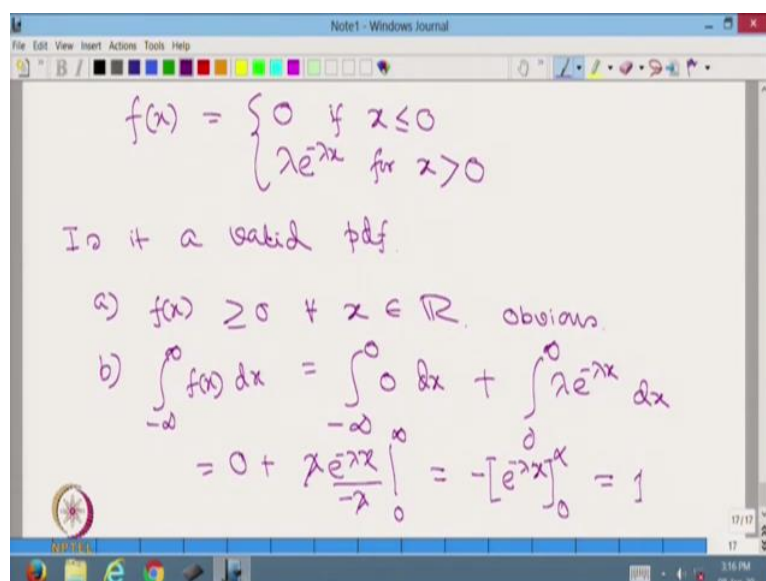 Note1 - Windows Journal
File Edit View Insert Actions Tools Help
B I
f(x) = { 0 if x ≤ 0
λe^{-λx} for x > 0
Is it a valid pdf.
a) f(x) ≥ 0 ∀ x ∈ ℝ. obvious.
b) ∫_{-∞}^{∞} f(x) dx = ∫_{-∞}^{0} 0 dx + ∫_{0}^{∞} λe^{-λx} dx
= 0 + λ e^{-λx}/-λ |_{0}^{∞} = -[e^{-λx}]_{0}^{∞} = 1
17/17
NPTEL
17
3:16 PM